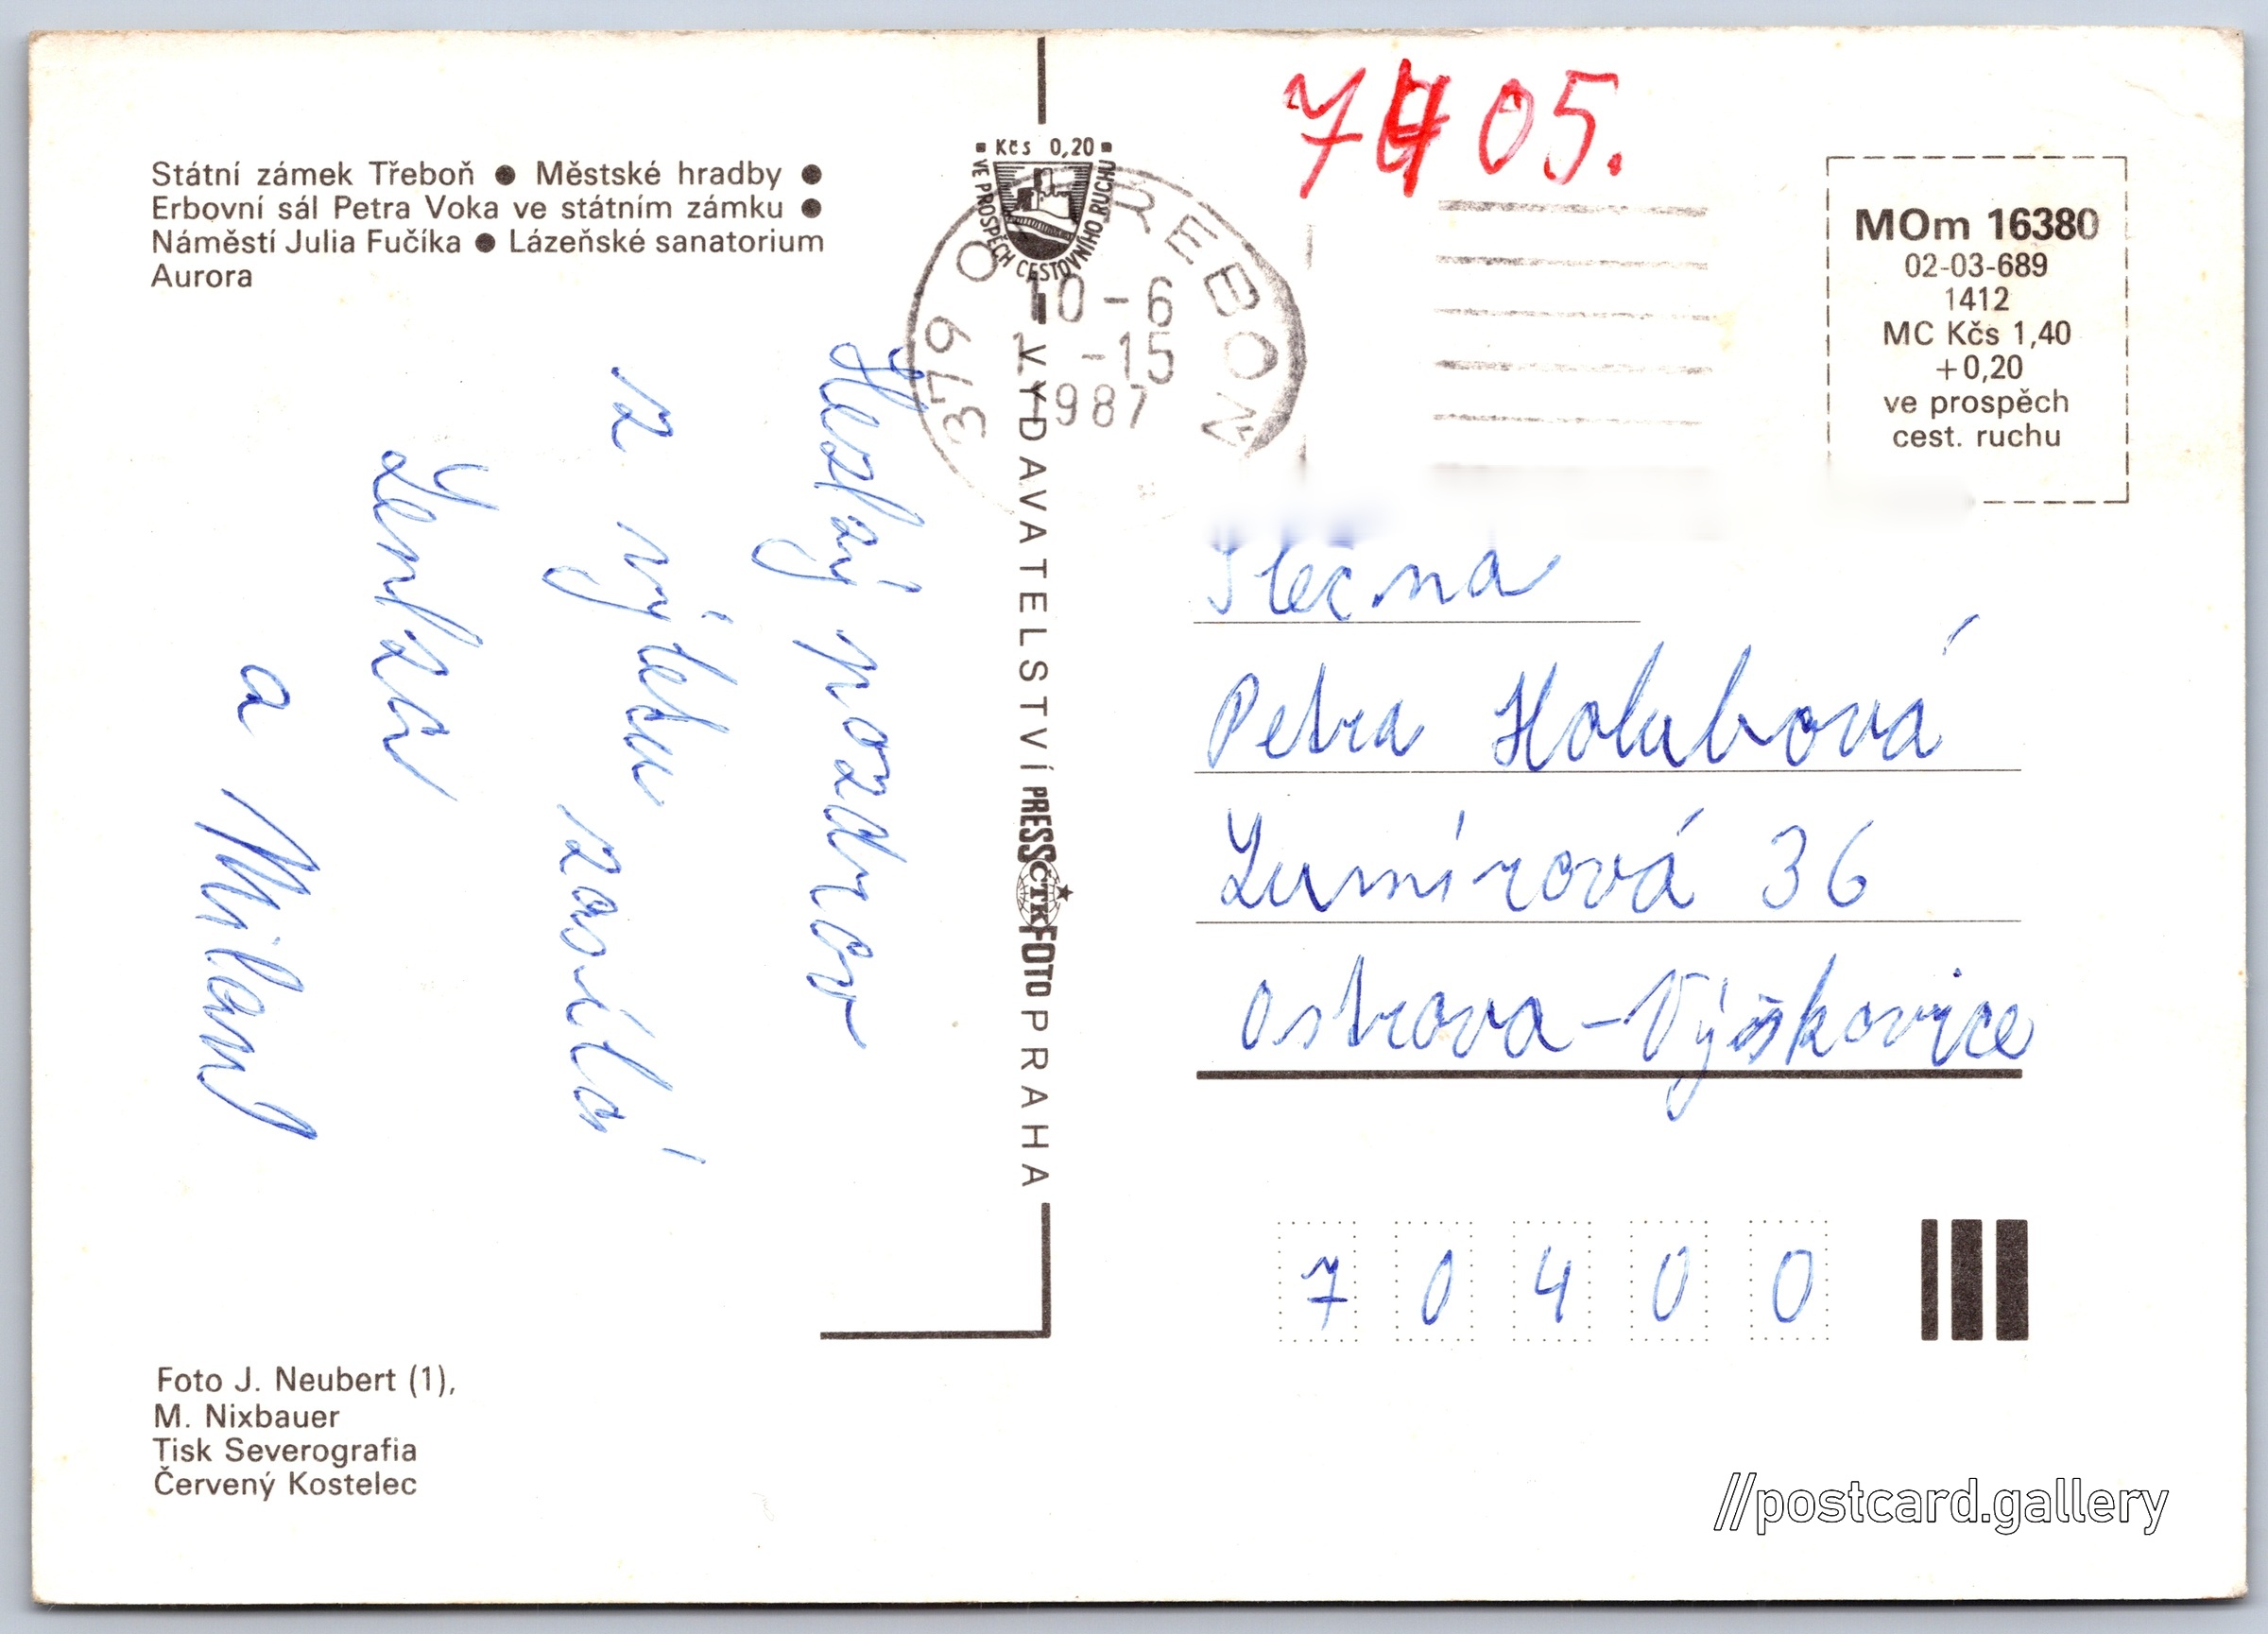 Státní zámek Třeboň ● Městské hradby ●
Erbovní sál Petra Voka ve státním zámku ●
Náměstí Julia Fučíka ● Lázeňské sanatorium
Aurora
Hezký pozdrav
z výletu zasílá
Lenka
a Milan
Foto J. Neubert (1),
M. Nixbauer
Tisk Severografia
Červený Kostelec
Kčs 0,20
VE PROSPĚCH CESTOVNÍHO RUCHU
VYDAVATELSTVÍ PRESSFOTO PRAHA
ČTK
379 0 TŘEBOŇ
10-6
-15
1987
05.
MOm 16380
02-03-689
1412
MC Kčs 1,40
+0,20
ve prospěch
cest. ruchu
Slečna
Petra Holubová
Lumírová 36
Ostrava-Výškovice
70400
//postcard.gallery